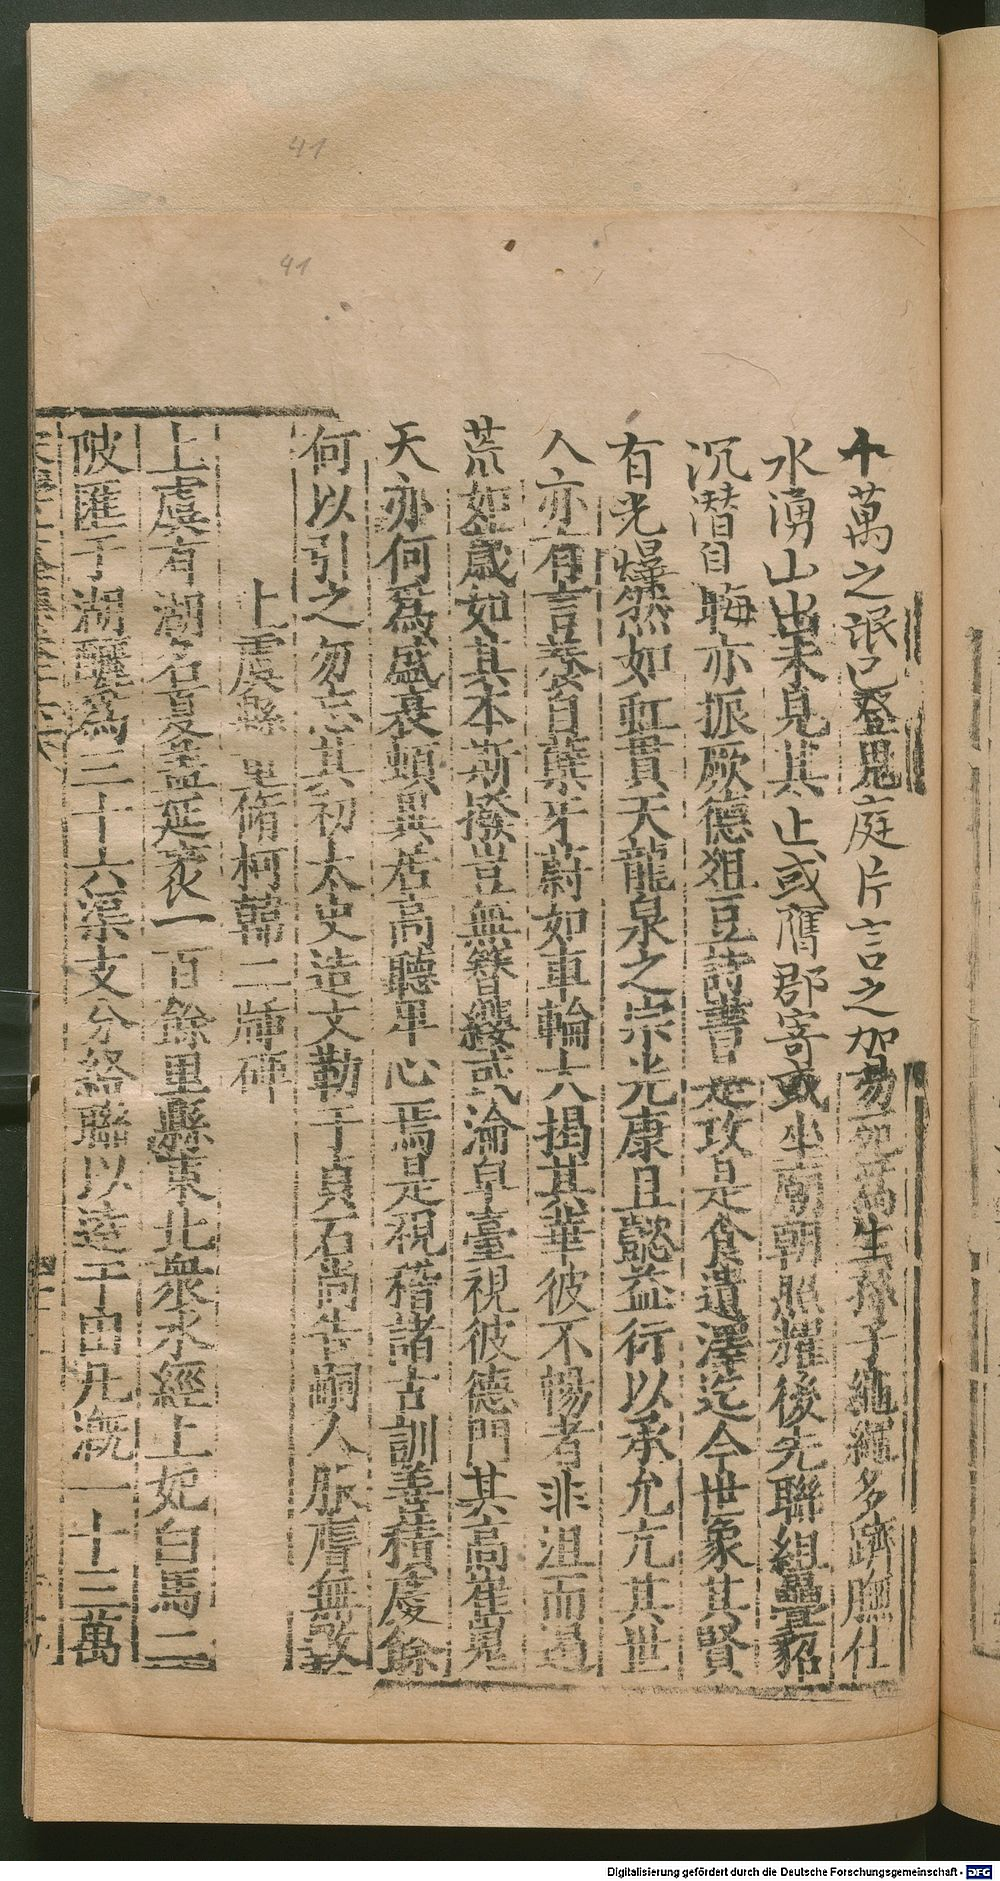 十萬之氓已登鬼庭片言之加易死為生孫子繩繩多躋膴仕
水湧山出未見其止或膺郡寄或坐廟朝照耀後先聯組疊貂
沉潜自晦亦振厥德俎豆詩書是攻是食遺澤迄今世象其賢
有光爆然如虹貫天龍泉之宗光康且懿益衍以承允亢其世
人亦有言卷自蘖牙蔚如車輪大揭其華彼不暢者非沮而遏
荒如歲如其本斯撥豈無簪纓或淪皁臺視彼德門其高崔嵬
天亦何為盛衰頓異若高聽卑心焉是視稽諸古訓善積慶餘
何以引之勿忘其初太史造文勒于貞石尚告嗣人服膺無斁
上虞縣 脩柯韓二牐碑
上虞有湖名夏蓋延袤一百餘里縣東北衆水經上妃白馬二
陂匯于湖釃為三十六渠支分絡聯以逵于田凡溉一十三萬
41
41
Digitalisierung gefördert durch die Deutsche Forschungsgemeinschaft - DFG